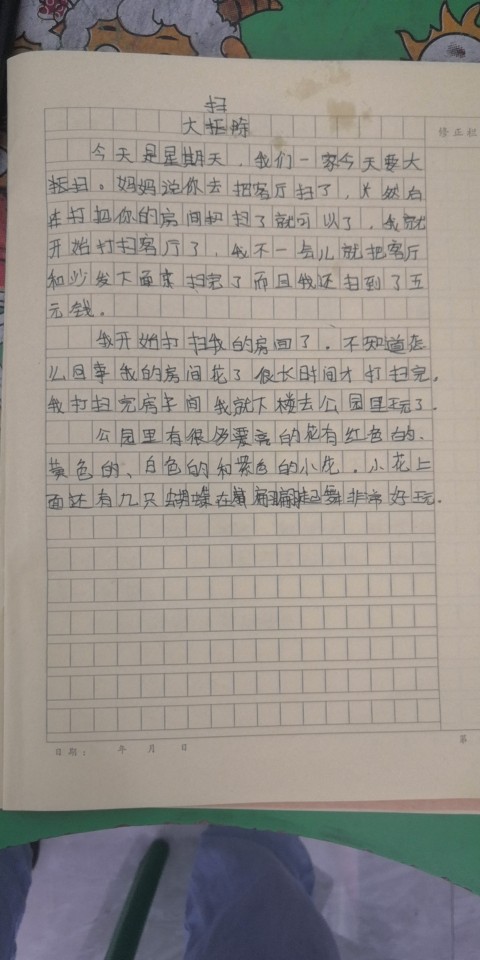 扫
大扫除
修正栏
今天是星期天，我们一家今天要大
扫。妈妈说你去把客厅扫了，然后
在打扫你的房间扫了就可以了，我就
开始打扫客厅了，我不一会儿就把客厅
和沙发下面扫完了而且我还扫到了五
元钱。
我开始打扫我的房间了，不知道怎
么回事我的房间花了很长时间才打扫完，
我打扫完房子间我就下楼去公园里玩了。
公园里有很多漂亮的花有红色的、
黄色的、白色的和紫色的小花，小花上
面还有几只蝴蝶在翩翩起舞非常好玩。
日期： 年 月 日
第